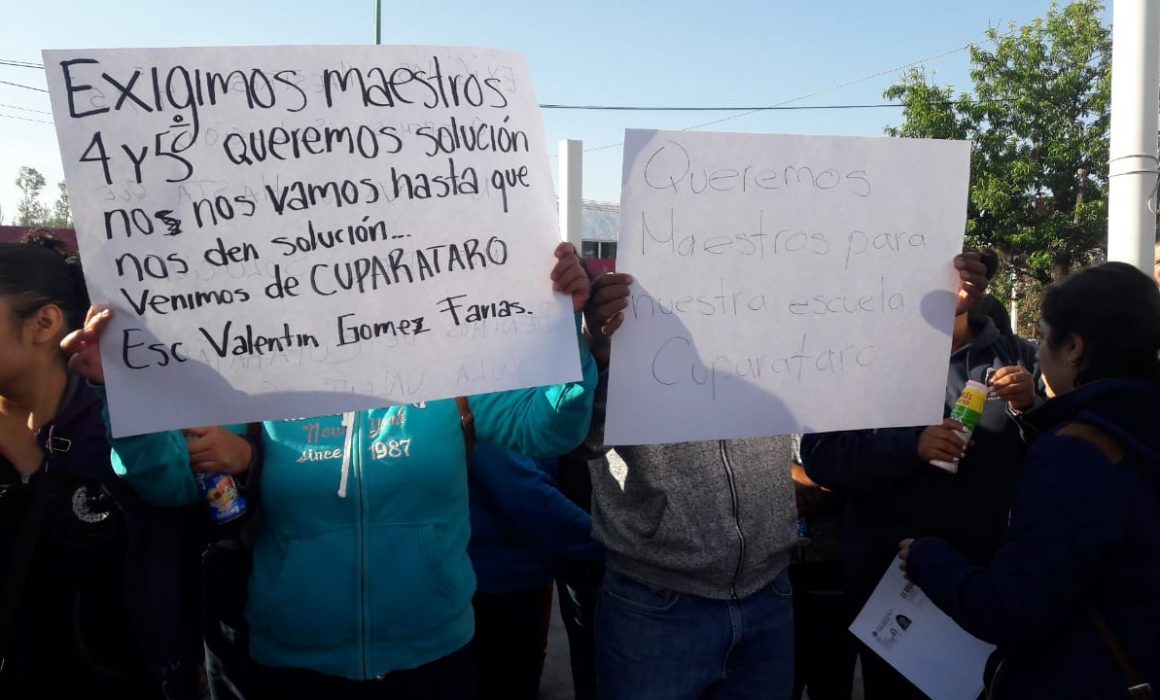 Exigimos maestros
4 y 5º queremos solución
nos nos vamos hasta que
nos den solución...
Venimos de CUPARATARO
Esc Valentin Gomez Farias.
Queremos
Maestros para
nuestra escuela
Cuparataro
New York
since 1987